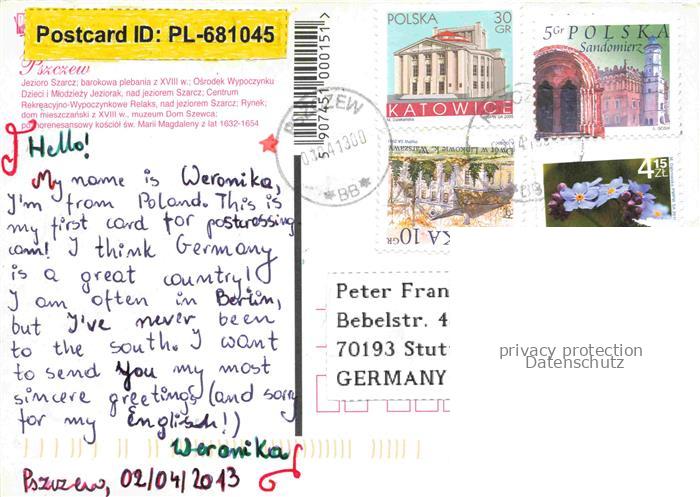 Postcard ID: PL-681045
Pszczew
Jezioro Szarcz; barokowa plebania z XVIII w.; Ośrodek Wypoczynku
Dzieci i Młodzieży Jeziorak, nad jeziorem Szarcz; Centrum
Rekreacyjno-Wypoczynkowe Relaks, nad jeziorem Szarcz; Rynek;
dom mieszczański z XVIII w., muzeum Dom Szewca;
późnorenesansowy kościół św. Marii Magdaleny z lat 1632-1654
Hello!
My name is Weronika,
I'm from Poland. This is
my first card for postcrossing
com! I think Germany
is a great country!
I am often in Berlin,
but I've never been
to the south. I want
to send you my most
sincere greetings (and sorry
for my English!)
Weronika
Pszczew, 02/04/2013
5 907451 000151 >
POLSKA 30
GR
KATOWICE
5Gr POLSKA
Sandomierz
Dwór w Linkowie k. Warszawy
KA 10
GR
4 15
ZŁ
PSZCZEW
*BB*
Peter Fran
Bebelstr. 4
70193 Stut
GERMANY
privacy protection
Datenschutz